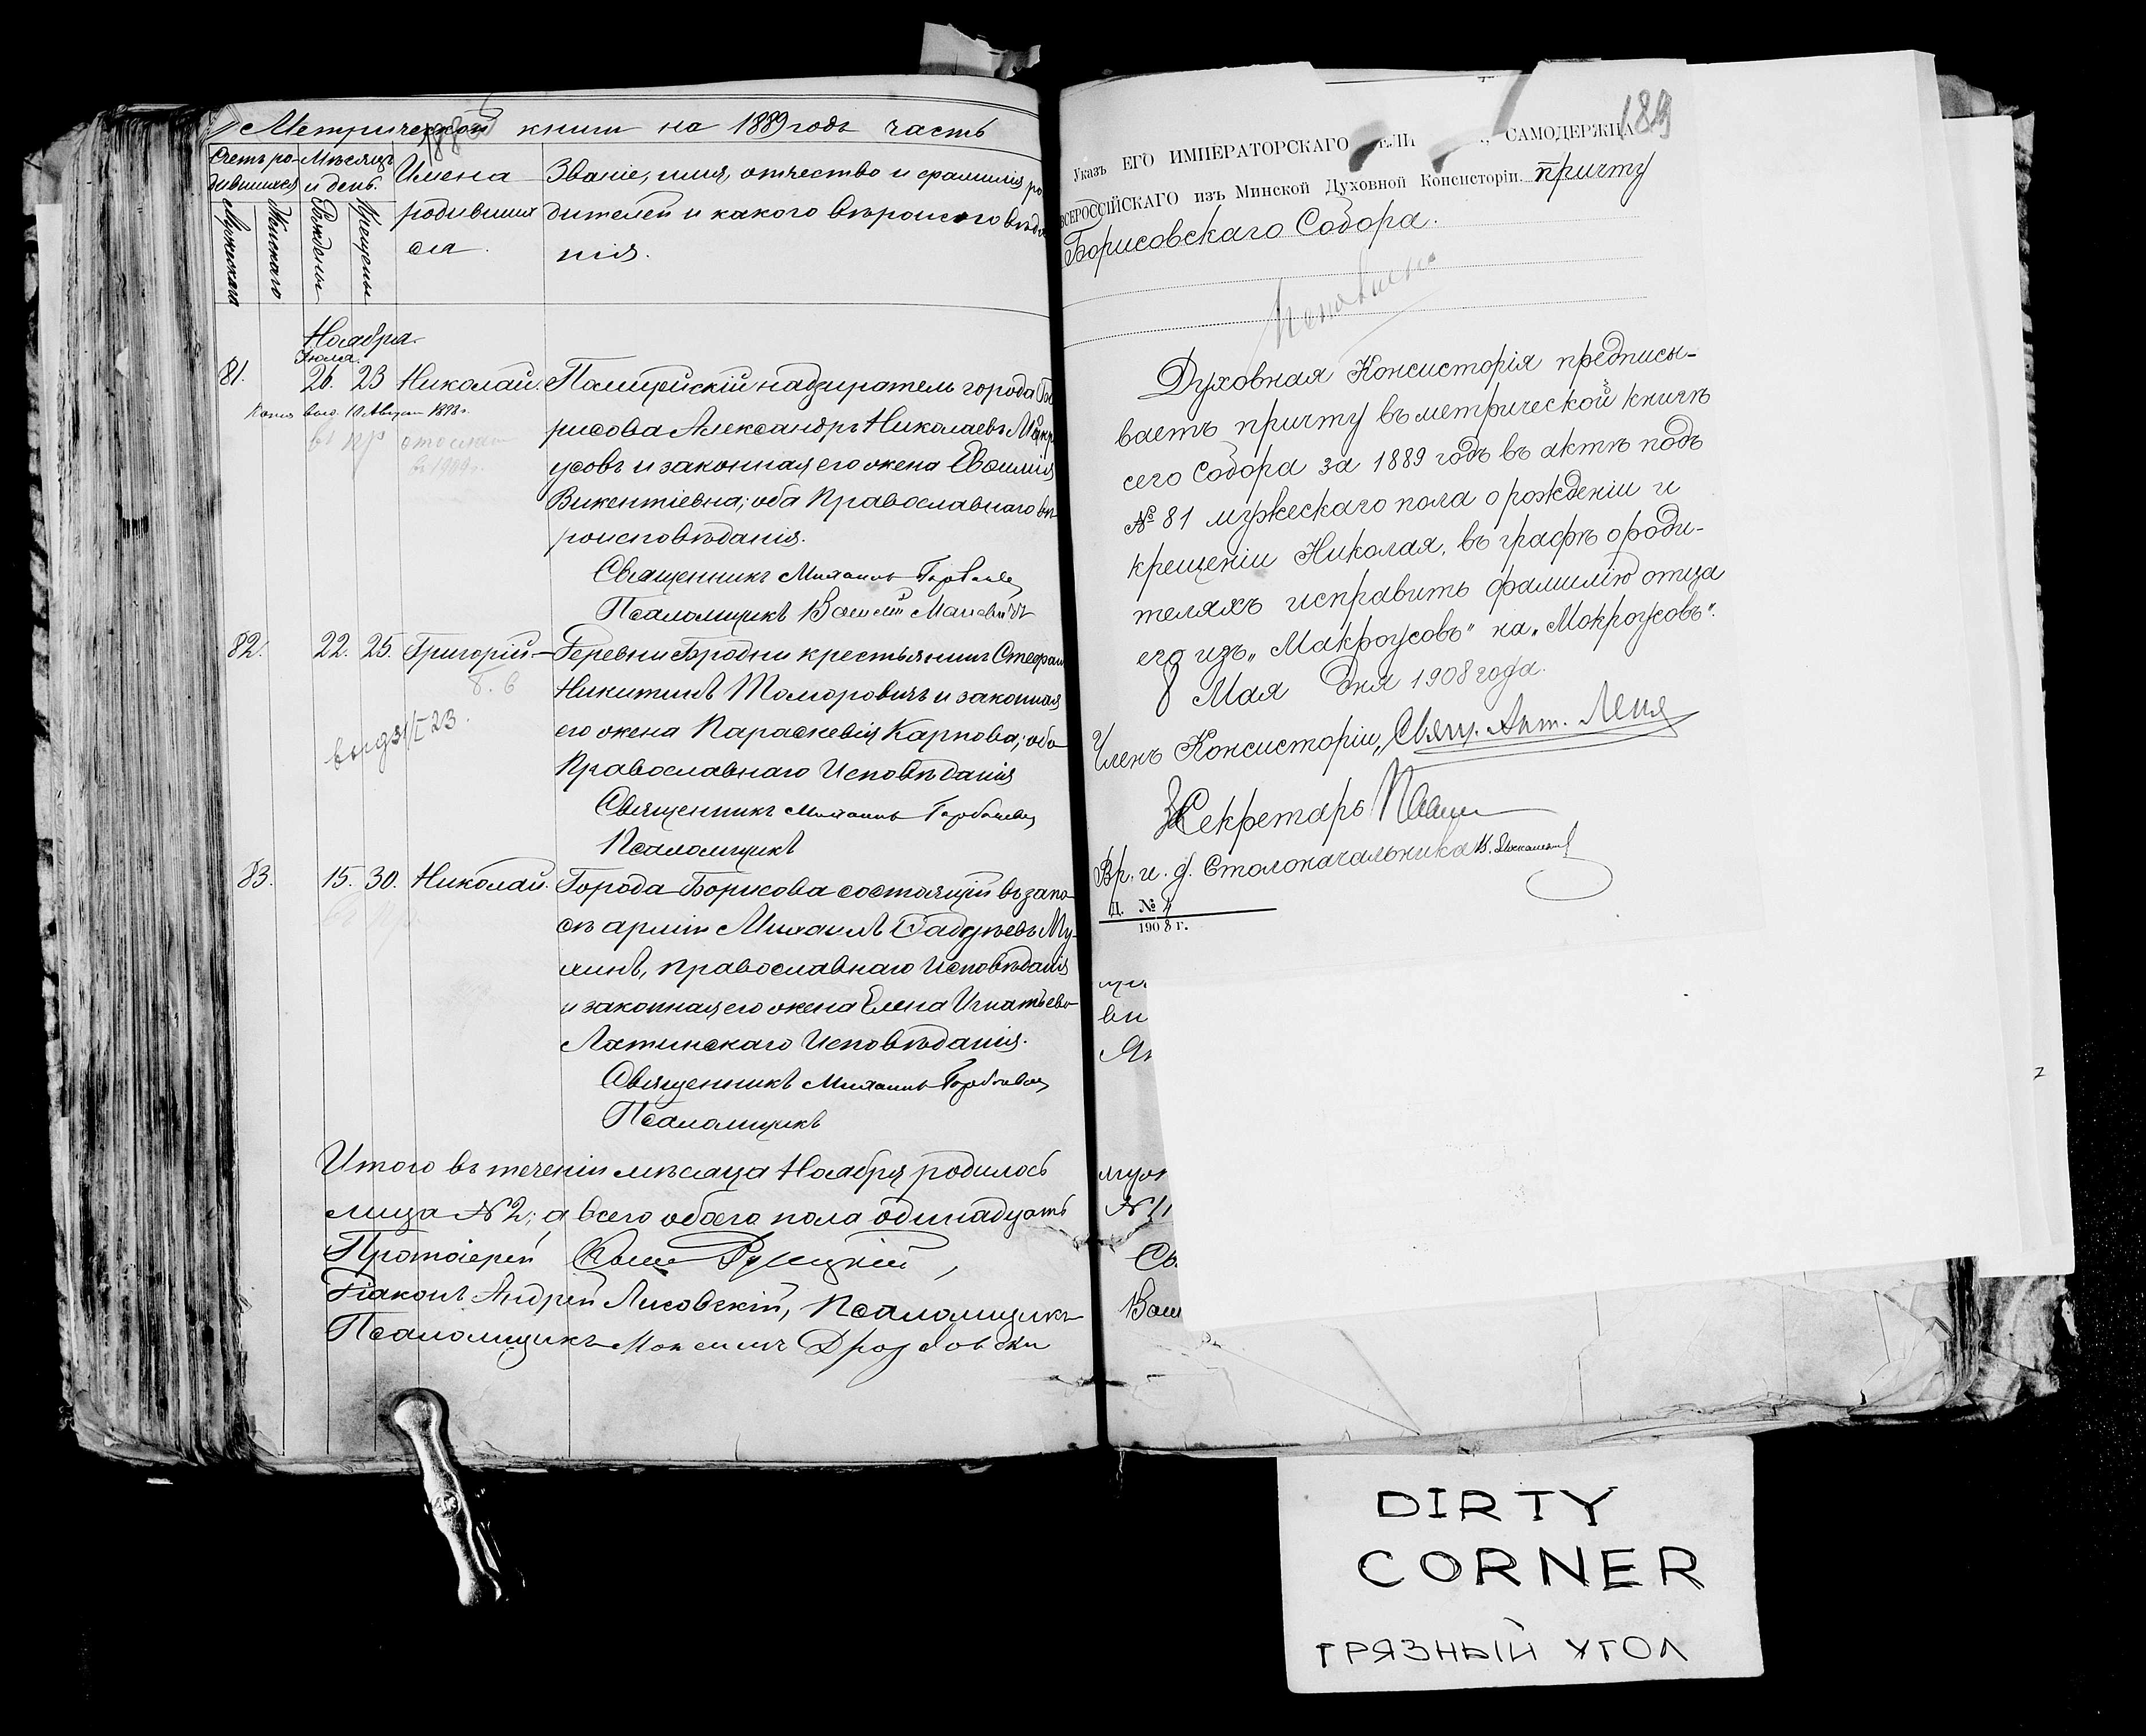 Метрической книги на 1889 годъ часть
Счетъ ро-
дившихся
Мѣсяцъ
и день.
Мужескаго
Женскаго
Рожденія
Крещенія
Имена
родивших
ся.
Званіе, имя, отчество и фамилія ро
дителей и какого вѣроисповѣда
нія.
Ноябрь.
Іюля.
81. 26. 23 Николай. Полицейскій надзиратель города Бо
Копія выд. 10 Августа
рисова Александръ Николаевъ Макро
усовъ и законная его жена
Викентіевна; оба Православнаго вѣ-
роисповѣданія.
Священникъ Михаилъ Горбачевъ
Псаломщикъ
82. 22. 25. Григорій- Деревни Бродни крестьянинъ Стефанъ
Никитинъ Томоровичъ и законная
выд 31/I 23.
его жена Параскевія Карпова; оба
Православнаго Исповѣданія
Священникъ Михаилъ Горбачевъ
Псаломщикъ
83. 15. 30. Николай. Города Борисова состоящій въ запа-
сѣ арміи Михаилъ
православнаго Исповѣданія
и законная его жена Елена Игнатьева
Латинскаго Исповѣданія.
Священникъ Михаилъ Горбачевъ
Псаломщикъ
Итого въ теченіи мѣсяца Ноября родилось
лица №2; а всего обоего пола одинадцать
Протоіерей
Діаконъ Андрей Лисовскій, Псаломщикъ
Псаломщикъ
189
Указъ ЕГО ИМПЕРАТОРСКАГО САМОДЕРЖЦА
ВСЕРОССІЙСКАГО изъ Минской Духовной Консисторіи. причту
Борисовскаго Собора.
Духовная Консисторія предписы-
ваетъ причту въ метрической книгѣ
сего Собора за 1889 годъ въ актѣ подъ
№ 81 мужескаго пола о рожденіи и
крещеніи Николая, въ графѣ о роди-
теляхъ исправить фамилію отца
его изъ „Макроусовъ" на „Мокроусовъ".
8 Мая дня 1908 года.
Членъ Консисторіи, Свящ. Ант.
Секретарь
Вр. и. д. Столоначальника
Д. № 4
1908 г.
ви
№ 11
Св.
DIRTY
CORNER
ГРЯЗНЫЙ УГОЛ